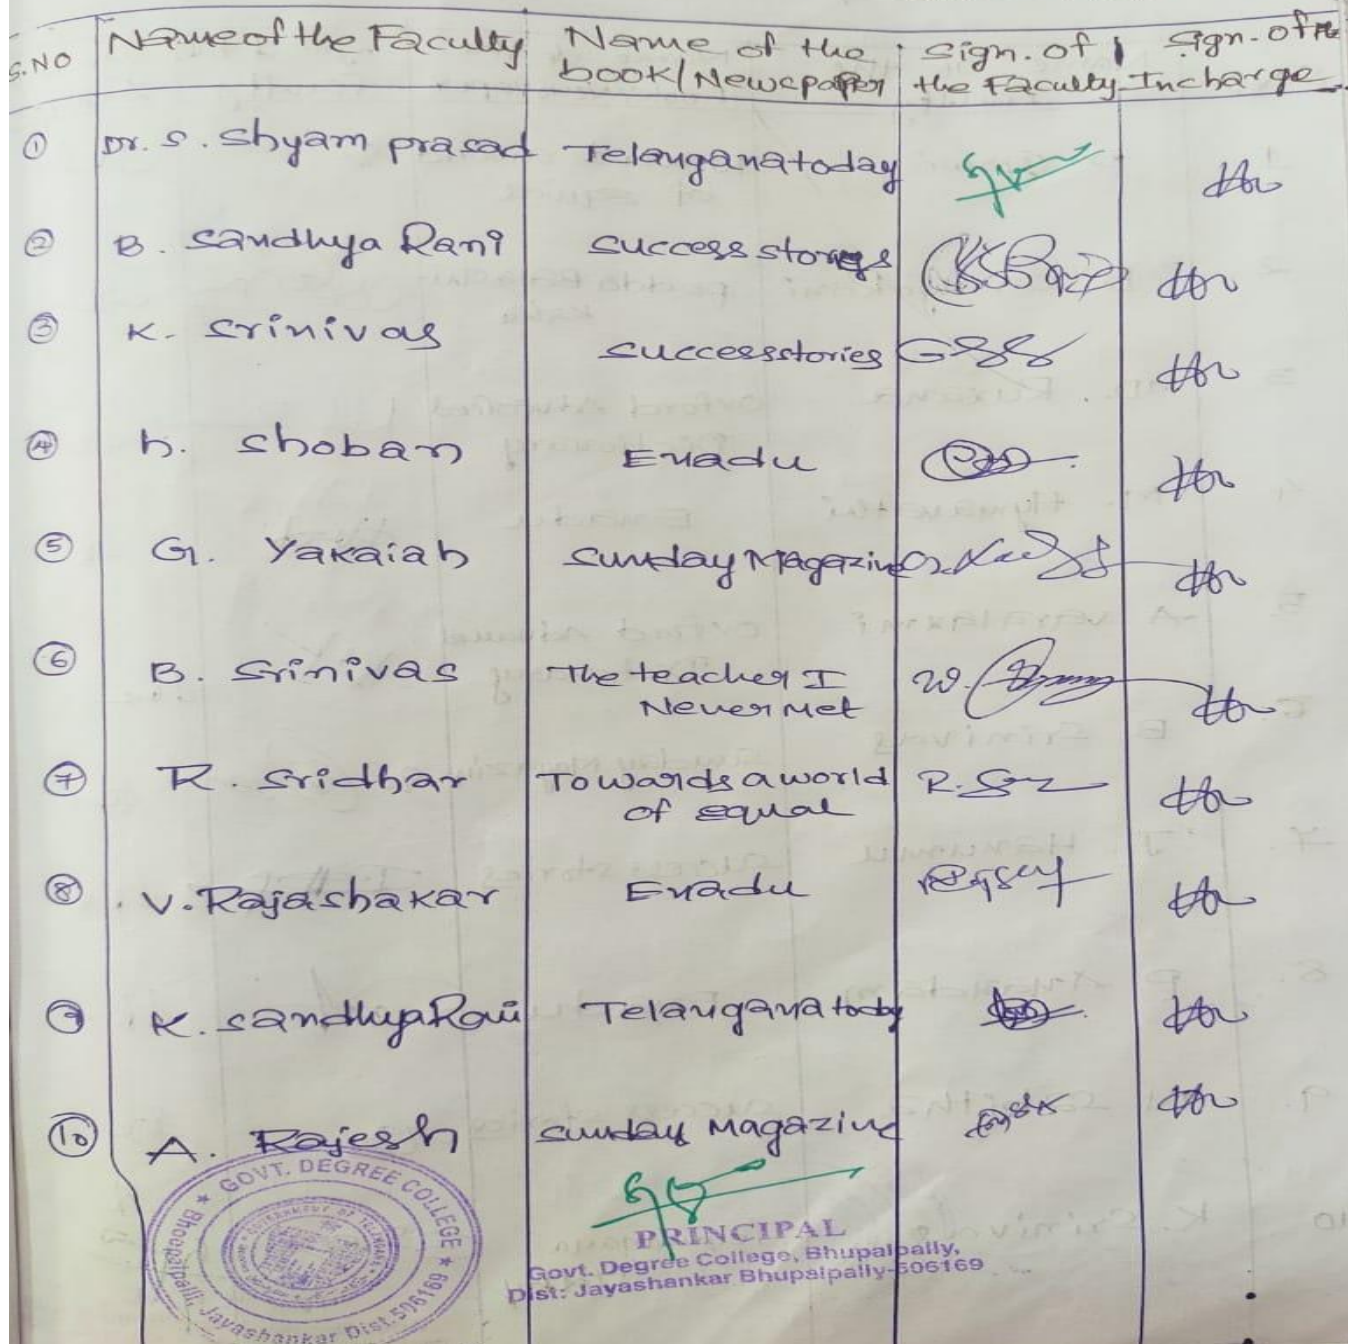 S.NO Name of the Faculty Name of the book/Newspaper Sign. of the Faculty Sign. of the Incharge
1 Dr. S. Shyam prasad Telangana today
2 B. Sandhya Rani success stories
3 K. Srinivas success stories
4 h. Shoban Enadu
5 G. Yakaiah Sunday Magazine
6 B. Srinivas The teacher I
Never Met
7 R. Sridhar Towards a world
of equal
8 V. Rajashakar Enadu
9 K. Sandhya Rani Telangana today
10 A. Rajesh Sunday Magazine
GOVT. DEGREE COLLEGE
Bhoopalpalli, Jayashankar Dist. 506169
PRINCIPAL
Govt. Degree College, Bhupalpally,
Dist: Jayashankar Bhupalpally-506169